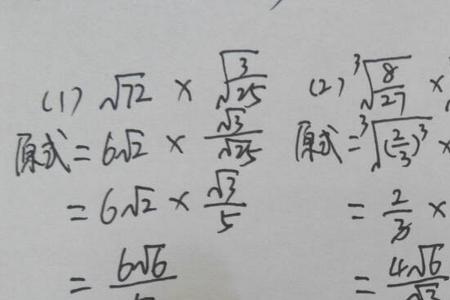 (1) √72 × √(3/√25)
原式 = 6√2 × √3/√25
= 6√2 × √3/5
= 6√6/
(2) ³√(8/27) ×
原式 = ³√((2/3)³) ×
= 2/3 ×
= 4√6/√3